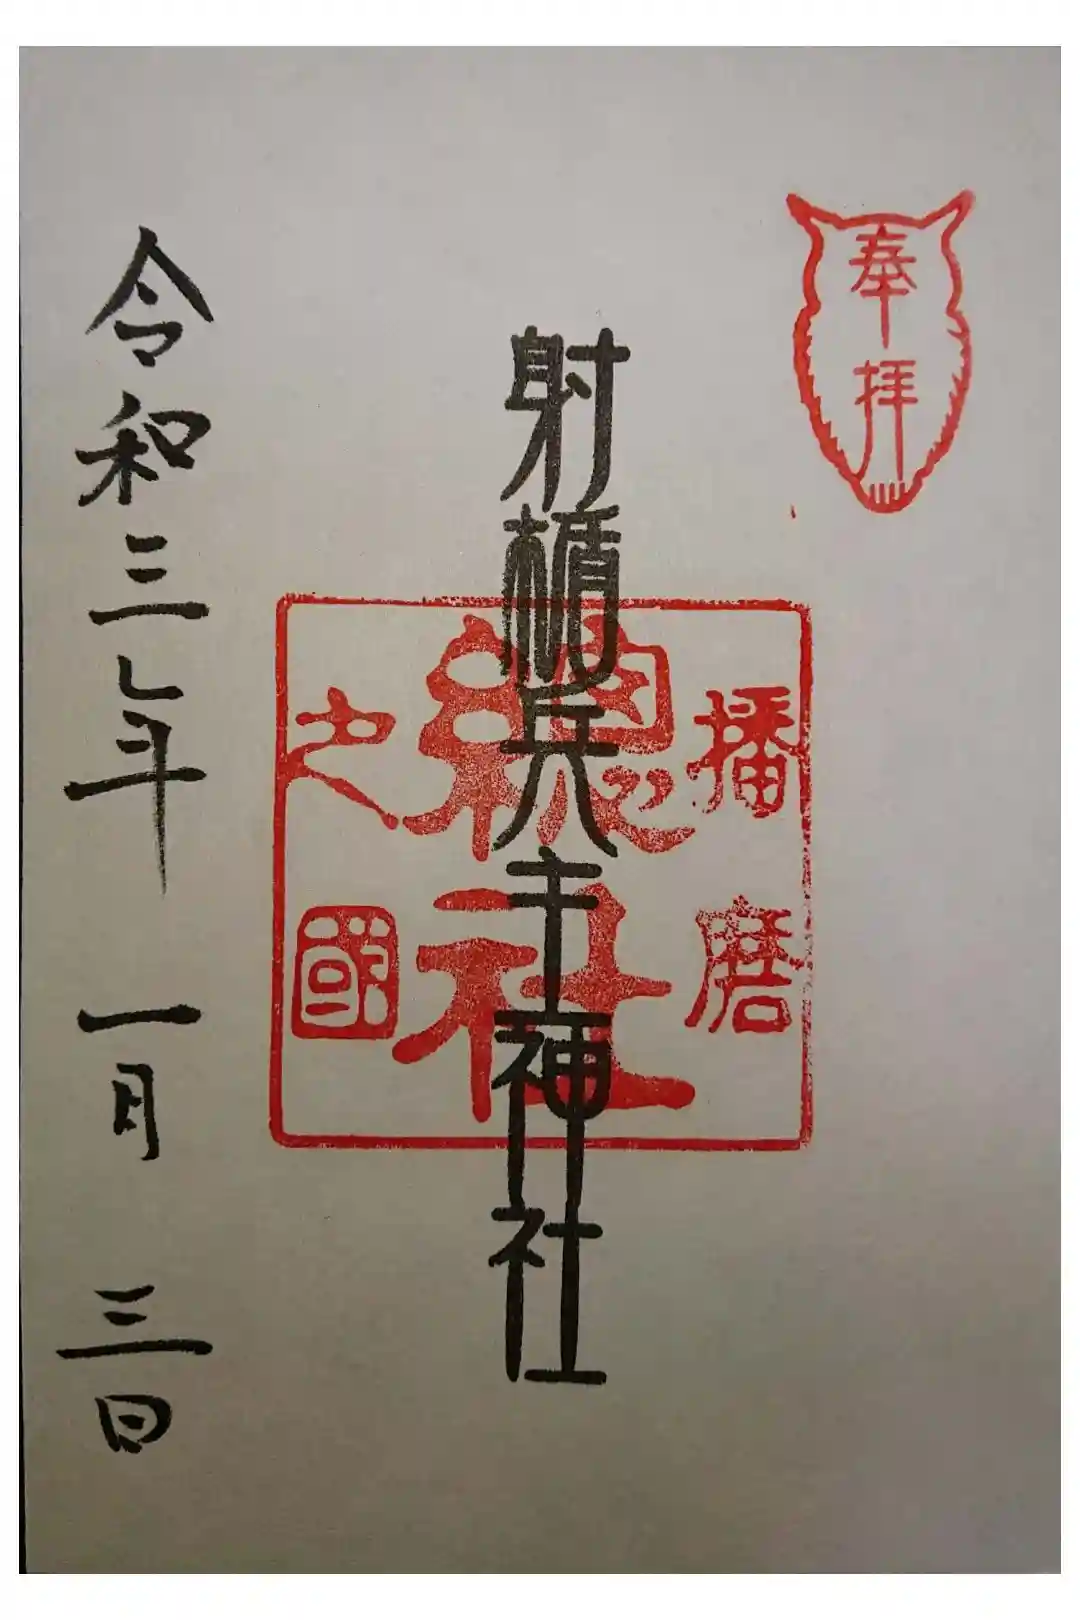 奉拝
射楯兵主神社
播磨
總社
之國
令和三年 一月 三日